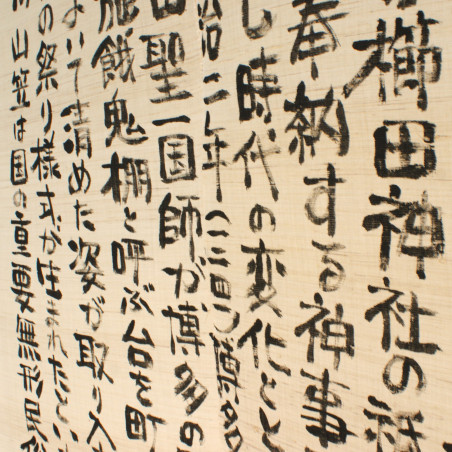 櫛田神社の祇
奉納する神事
し時代の変化とと
治二年(一二四一)
聖一国師が博多の
施餓鬼棚と呼ぶ台を町
いて清めた姿が取り入
の祭り様式が生まれたとい
山笠は国の重要無形民俗